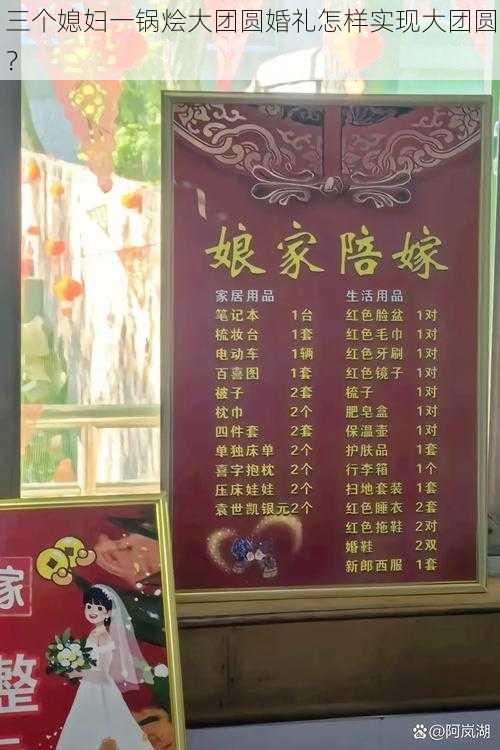 三个媳妇一锅烩大团圆婚礼怎样实现大团圆
?
娘家陪嫁
家居用品
笔记本 1台
梳妆台 1套
电动车 1辆
百喜图 1套
被子 2套
枕巾 2个
四件套 2套
单独床单 2个
喜字抱枕 2个
压床娃娃 2个
袁世凯银元2个
生活用品
红色脸盆 1对
红色毛巾 1对
红色牙刷 1对
红色镜子 1对
梳子 1对
肥皂盒 1对
保温壶 1对
护肤品 1套
行李箱 1个
扫地套装 1套
红色睡衣 2套
红色拖鞋 2对
婚鞋 2双
新郎西服 1套
家
整
@阿岚湖